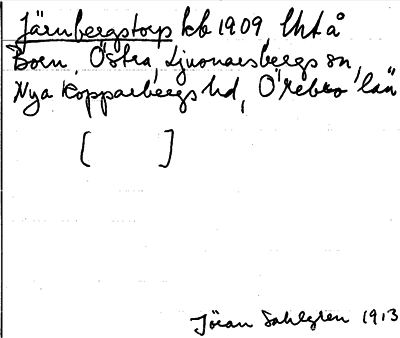 Järnbergstorp kb 1909, lht å
Born, Östra, Ljusnarsbergs sn,
Nya Kopparbergs hd, Örebro län
[ ]
Jöran Sahlgren 1913